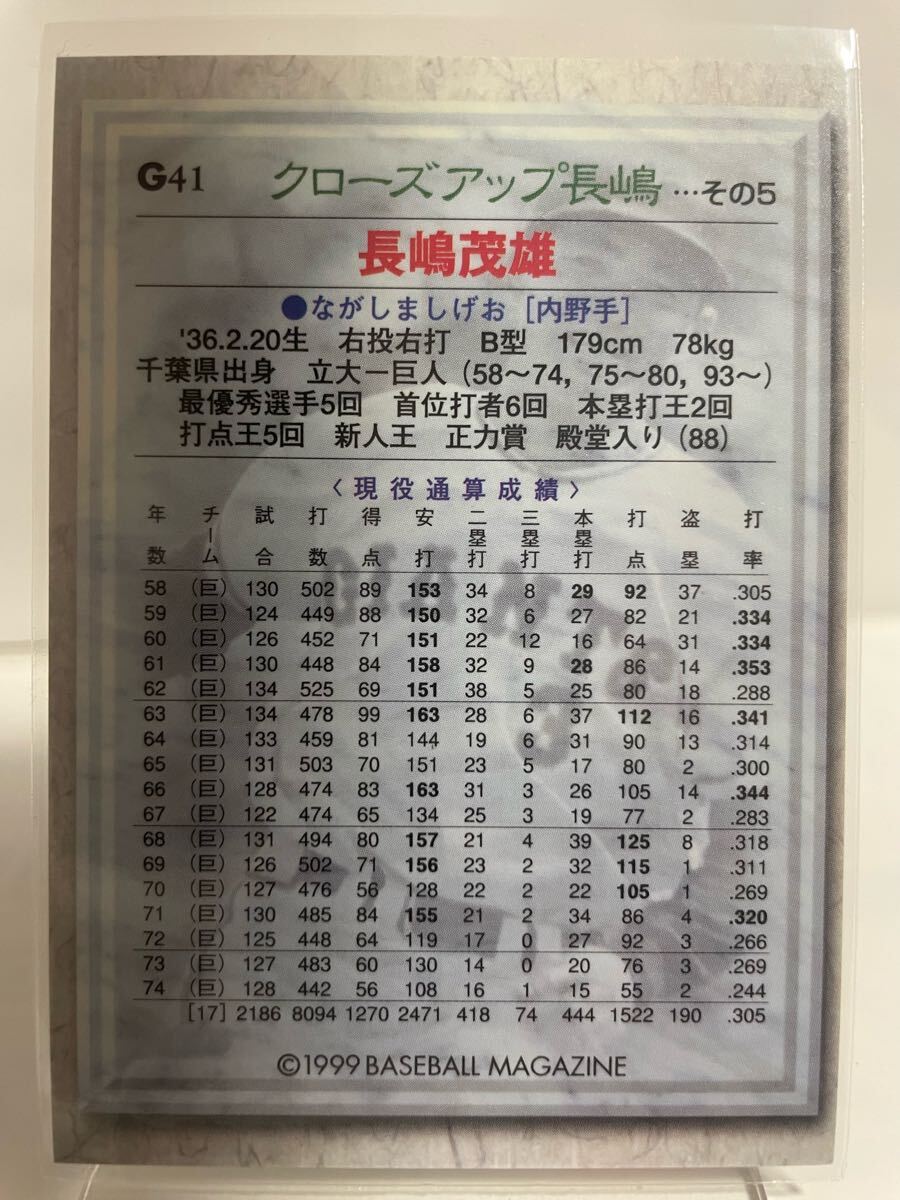 G41 クローズアップ長嶋…その5
長嶋茂雄
●ながしましげお［内野手］
'36.2.20生 右投右打 B型 179cm 78kg
千葉県出身 立大ー巨人（58〜74，75〜80，93〜）
最優秀選手5回 首位打者6回 本塁打王2回
打点王5回 新人王 正力賞 殿堂入り（88）
〈現役通算成績〉
年数 チーム 試合 打数 得点 安打 二塁打 三塁打 本塁打 打点 盗塁 打率
58 （巨） 130 502 89 153 34 8 29 92 37 .305
59 （巨） 124 449 88 150 32 6 27 82 21 .334
60 （巨） 126 452 71 151 22 12 16 64 31 .334
61 （巨） 130 448 84 158 32 9 28 86 14 .353
62 （巨） 134 525 69 151 38 5 25 80 18 .288
63 （巨） 134 478 99 163 28 6 37 112 16 .341
64 （巨） 133 459 81 144 19 6 31 90 13 .314
65 （巨） 131 503 70 151 23 5 17 80 2 .300
66 （巨） 128 474 83 163 31 3 26 105 14 .344
67 （巨） 122 474 65 134 25 3 19 77 2 .283
68 （巨） 131 494 80 157 21 4 39 125 8 .318
69 （巨） 126 502 71 156 23 2 32 115 1 .311
70 （巨） 127 476 56 128 22 2 22 105 1 .269
71 （巨） 130 485 84 155 21 2 34 86 4 .320
72 （巨） 125 448 64 119 17 0 27 92 3 .266
73 （巨） 127 483 60 130 14 0 20 76 3 .269
74 （巨） 128 442 56 108 16 1 15 55 2 .244
［17］ 2186 8094 1270 2471 418 74 444 1522 190 .305
©1999 BASEBALL MAGAZINE